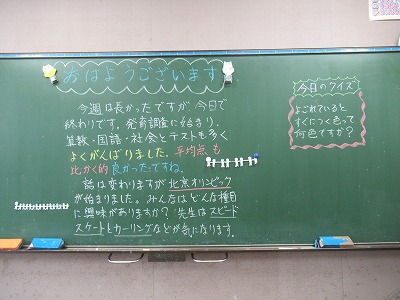 おはようございます
今週は長かったですが、今日で
終わりです。発育調査に始まり、
算数・国語・社会とテストも多く
よくがんばりました。平均点も
比かく的良かったですね。
話は変わりますが北京オリンピック
が始まりました。みんなはどんな種目
に興味がありますか？先生はスピード
スケートとカーリングなどが気になります。
今日のクイズ
よごれていると
すぐにつく色って
何色ですか？